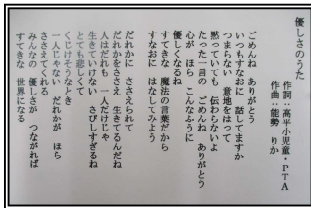 優しさのうた
作詞：高平小児童・PTA
作曲：能勢 りか
ごめんね ありがとう
いつもすなおに 話してますか
つまらない 意地をはって
黙っていても 伝わらないよ
たった一言の ごめんね ありがとう
心が ほら こんなふうに
優しくなるね
すてきな 魔法の言葉だから
すなおに はなしてみよう
だれかに ささえられて
だれかをささえ 生きてるんだね
人はだれも 一人だけじゃ
生きていけない さびしすぎるね
とても悲しくて
くじけそうなとき
一人じゃない だれかが ほら
ささえてくれる
みんなの 優しさが つながれば
すてきな 世界になる